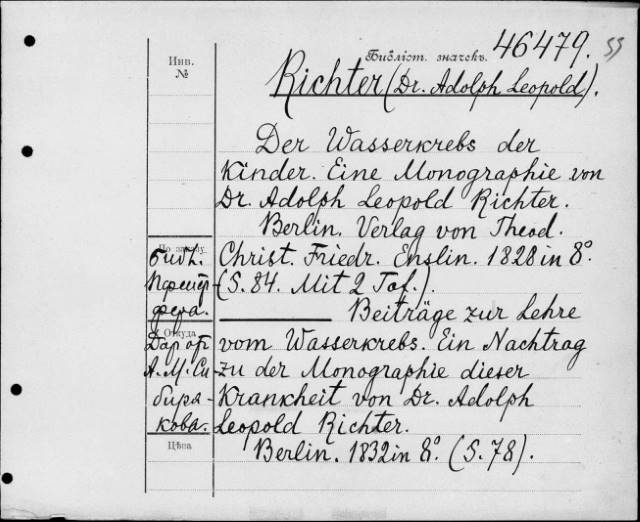 Инв.
№
Библіот. значекъ.
46479.
53
Richter (Dr. Adolph Leopold).
Der Wasserkrebs der
Kinder. Eine Monographie von
Dr. Adolph Leopold Richter.
Berlin. Verlag von Theod.
Christ. Friedr. Enslin. 1828 in 8º
(S. 84. Mit 2 Taf.).
По заказу
библ.
Пфейф-
фера.
Beiträge zur Lehre
vom Wasserkrebs. Ein Nachtrag
zu der Monographie dieser
Krankheit von Dr. Adolph
Leopold Richter.
Berlin. 1832 in 8º. (S. 78).
Откуда
Дар от
А. М. Си-
биря-
кова.
Цѣна